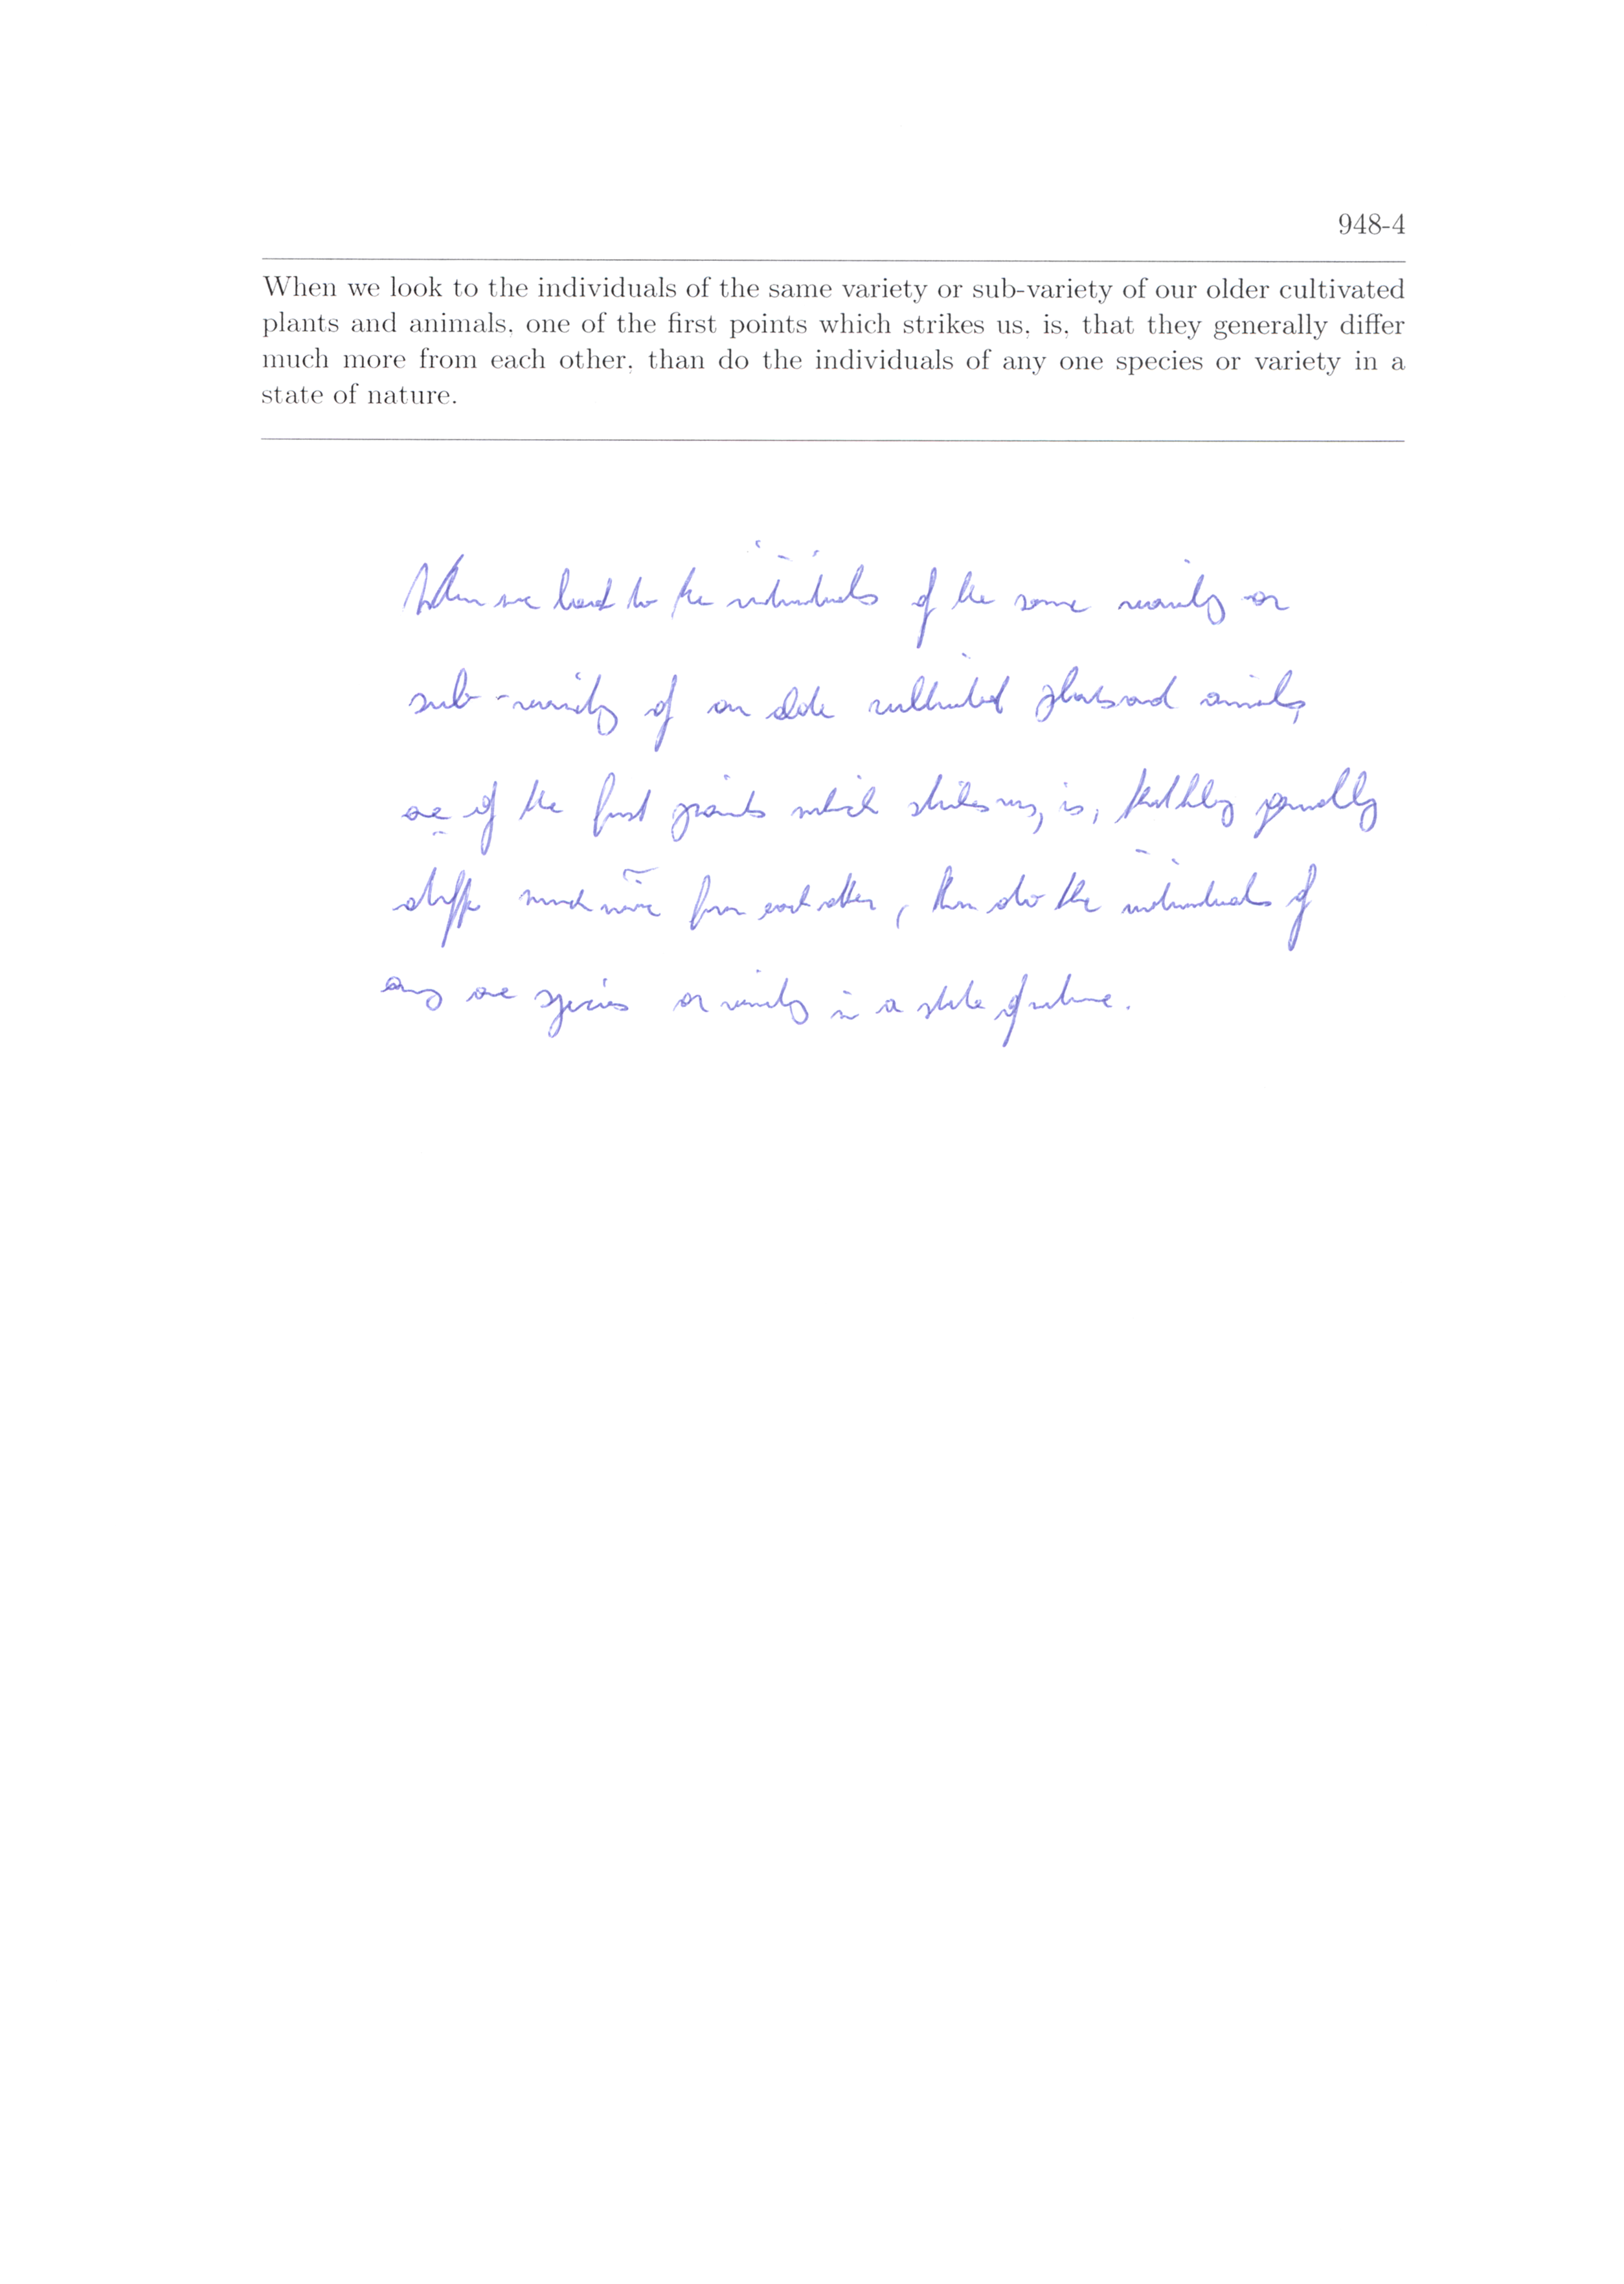 948-4
When we look to the individuals of the same variety or sub-variety of our older cultivated
plants and animals, one of the first points which strikes us, is, that they generally differ
much more from each other, than do the individuals of any one species or variety in a
state of nature.
When we look to the individuals of the same variety or
sub-variety of our older cultivated plants and animals,
one of the first points which strikes us, is, that they generally
differ much more from each other, than do the individuals of
any one species or variety in a state of nature.